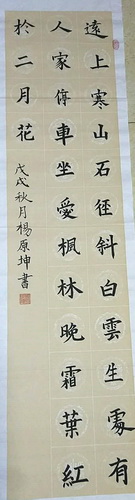 遠上寒山石徑斜白雲生處有
人家停車坐愛楓林晚霜葉紅
於二月花
戊戌秋月楊原坤書